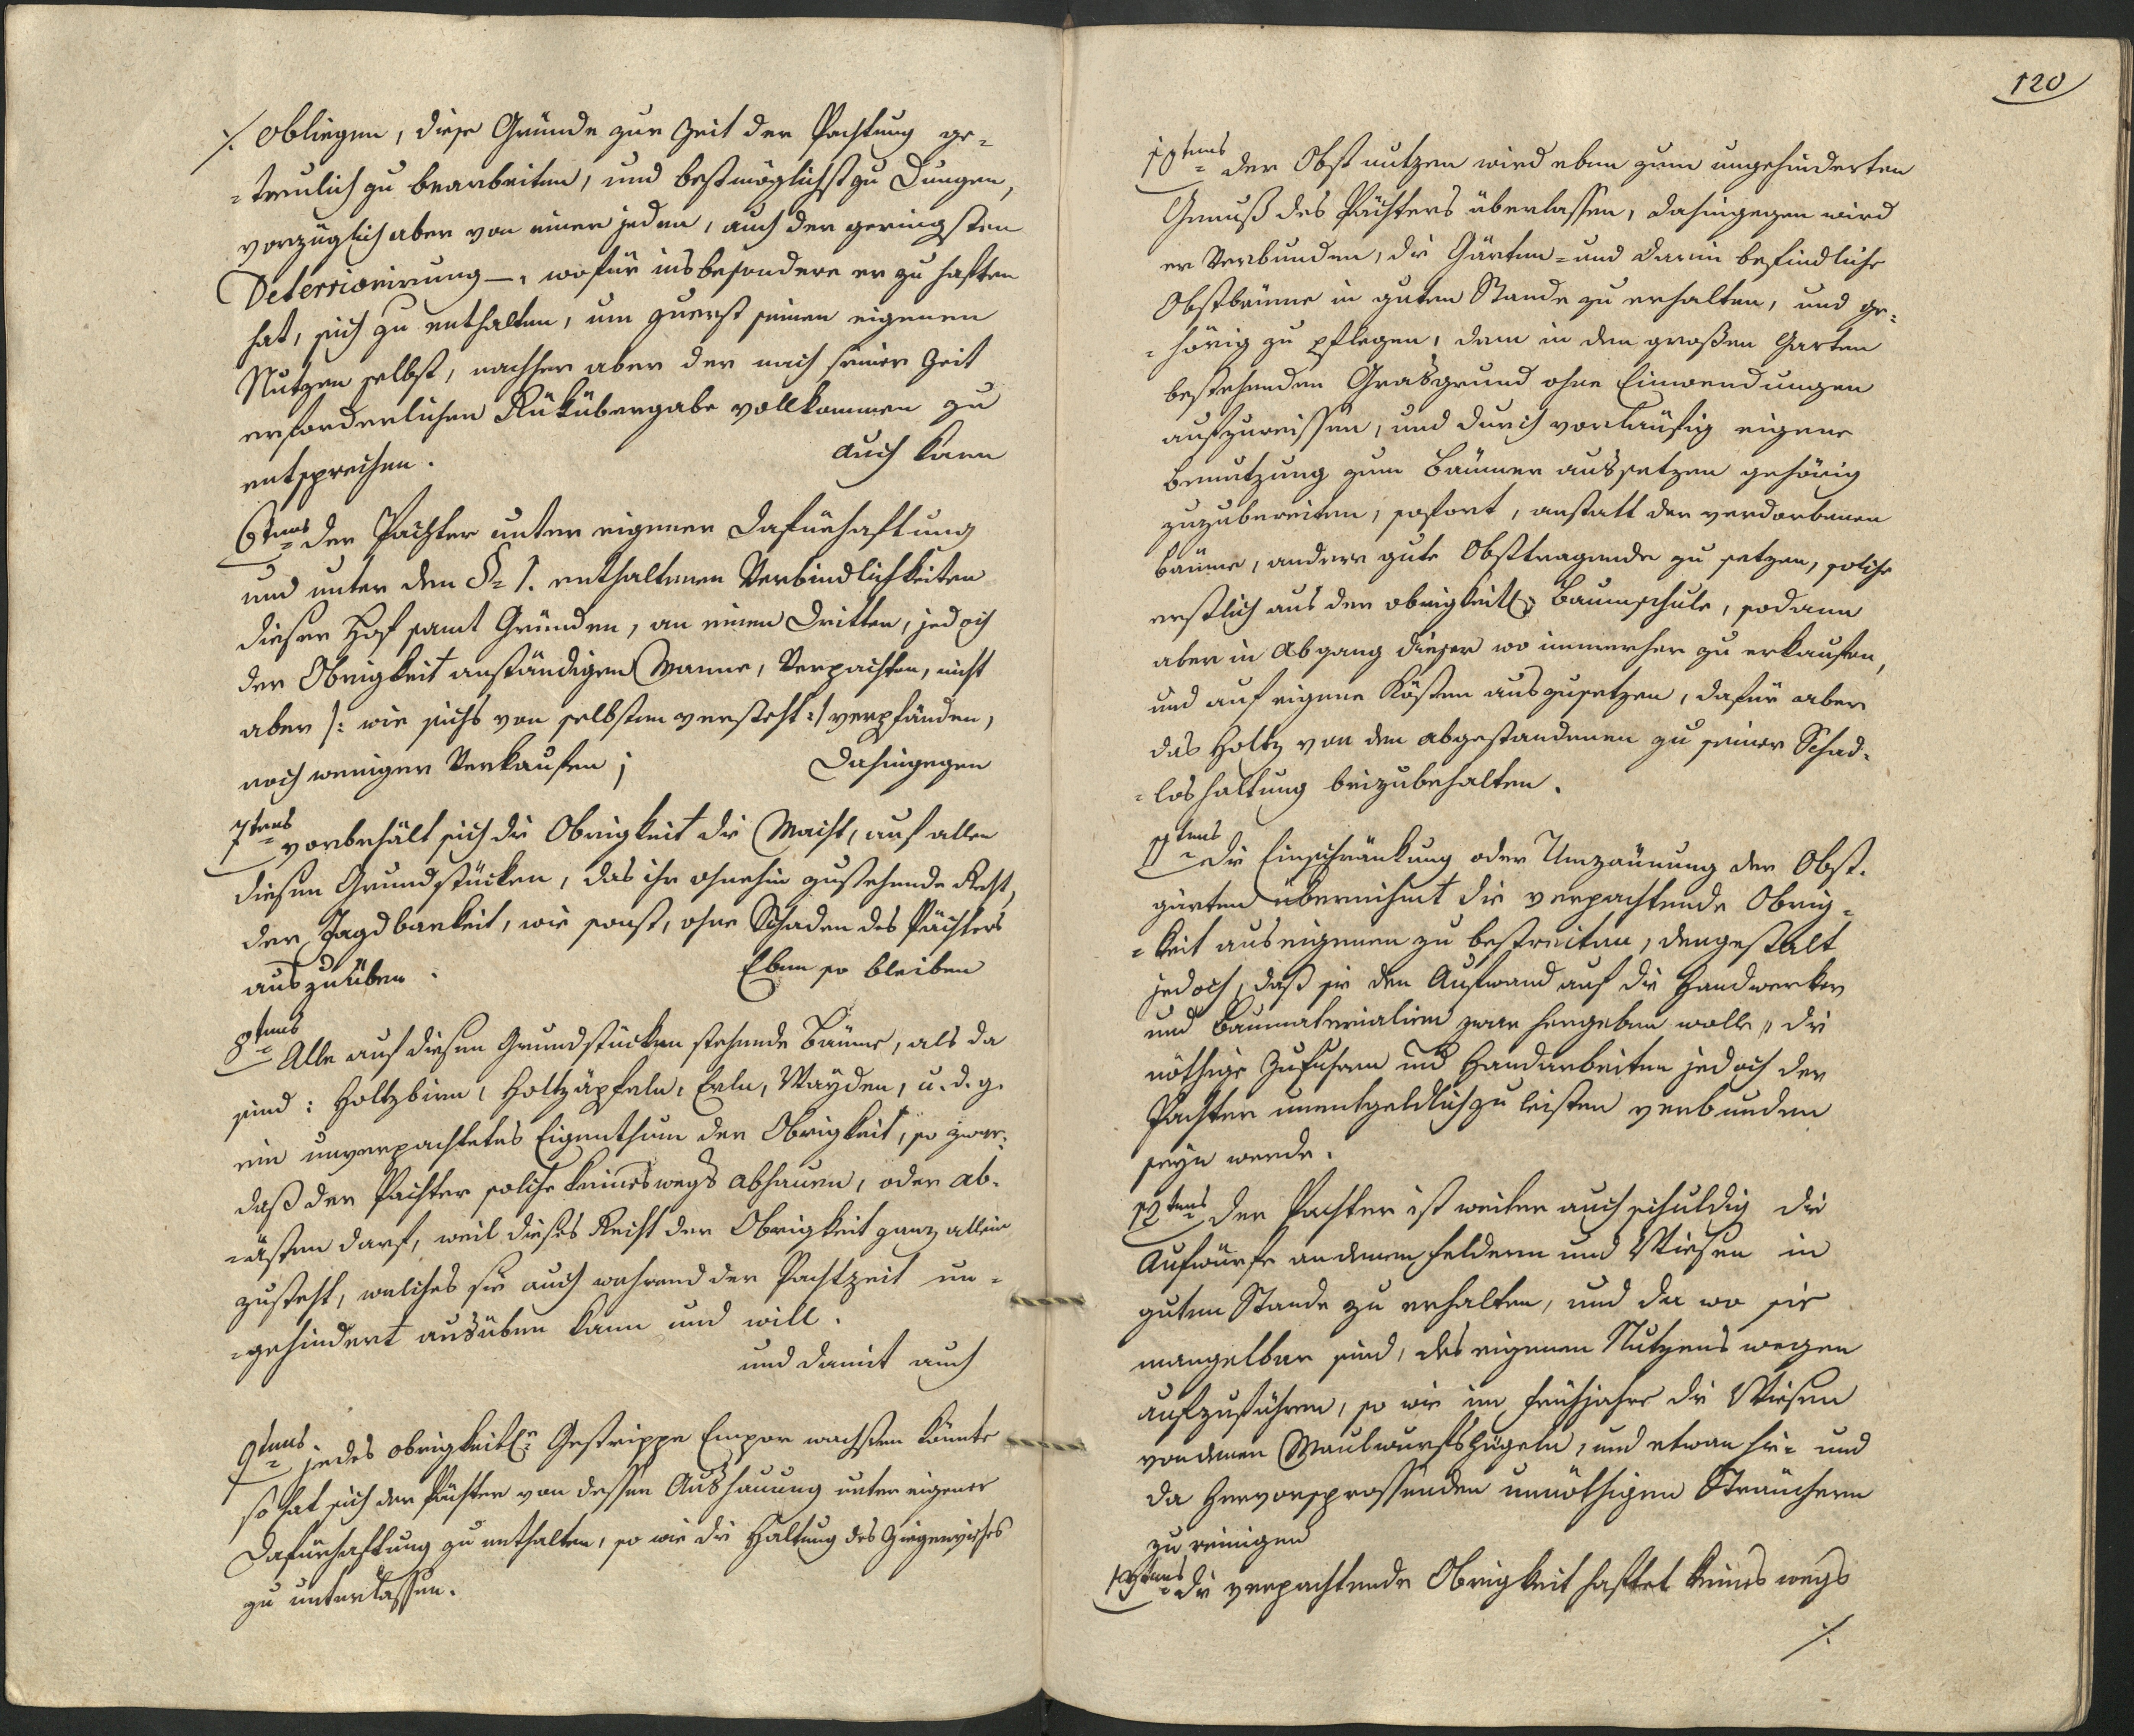 ./. obliegen, diese Gründe zur Zeit der Pachtung ge=
=treulich zu bearbeiten, und bestmöglichst zu Dungen,
vorzüglich aber von einer jeden, auch der geringsten
Deterriorirung —, wofür insbesondere er zu haften
hat, sich zu enthalten, um zuerst seinen eigenen
Nutzen selbst, nachher aber der nach seiner Zeit
erforderlichen Rükübergabe vollkommen zu
entsprechen. auch kann
6tens der Pächter unter eigener Dafürhaftung
und unter den §= 1. enthaltenen Verbindlichkeiten
dieser Hof samt Gründen, an einen Dritten, jedoch
der Obrigkeit anständigen Manne, Verpachten, nicht
aber /: wie sichs von selbsten versteht :/ verpfänden,
noch weniger Verkaufen; Dahingegen
7tens vorbehält sich die Obrigkeit die Macht, auf allen
diesen Grundstücken, das ihr ohnehin zustehende Recht,
der Jagdbarkeit, wie sonst, ohne Schaden des Pächters
auszuüben. Eben so bleiben
8tens Alle auf diesen Grundstücken stehende Bäume, als da
sind: Holtzbirn, Holtzäpfeln, Erln, Wayden, u. d. g.
ein unverpachtetes Eigenthum der Obrigkeit, so zwar:
daß der Pächter solche keineswegs abhauen, oder ab=
=ästen darf, weil dieses Recht der Obrigkeit ganz allein
zusteht, welches sie auch wahrend der Pachtzeit un=
=gehindert ausüben kann und will.
und damit auch
9tens jedes obrigkeitl. Gestrippe Empor wachsen könnte
so hat sich der Pächter von dessen Aushauung unter eigener
Dafürhaftung zu enthalten, so wie die Haltung des Ziegenviehes
zu unterlassen.
120
10tens der Obst nutzen wird eben zum ungehinderten
Genuß des Pächters überlassen, dahingegen wird
er Verbunden, die Gärten= und darin befindliche
Obstbäume in guten Stande zu erhalten, und ge=
=hörig zu pflegen, dann in den großen Garten
bestehenden Grasgrund ohne Einwendungen
aufzureissen, und durch vorläufig eigene
Benutzung zum Bäumer aussetzen gehörig
zuzubereiten, sofort, anstatt der verdorbenen
Bäume, andere gute Obsttragende zu setzen, solche
erstlich aus der obrigkeitl. Baumschule, sodann
aber in Abgang dieser wo immerher zu erkaufen,
und auf eigene Kösten auszusetzen, dafür aber
das Holtz von den abgestandenen zu seiner Schad=
=loshaltung beizubehalten.
11tens die Einschränkung oder Umzäunung der Obst=
gärten übernihmt die verpachtende Obrig=
=keit aus eigenen zu bestreiten, dergestalt
jedoch, daß sie den Aufwand auf die Handwerker
und Baumaterialien zwar hergeben wolle, die
nöthige Zufuhren und Handarbeiten jedoch der
Pachter unentgeldlich zu leisten verbunden
seyn werde.
12tens der Pachter ist weiter auch schuldig die
Aufwürfe an denen Feldern und Wiesen in
guten Stande zu erhalten, und da wo sie
mangelbar sind, des eigenen Nutzens wegen
aufzuführen, so wie im Frühjahre die Wiesen
von denen Maulwurfshügeln, und etwan hie= und
da hervorsprossenden unnöthigen Sträuchern
zu reinigen
13tens die verpachtende Obrigkeit haftet keines wegs
./.